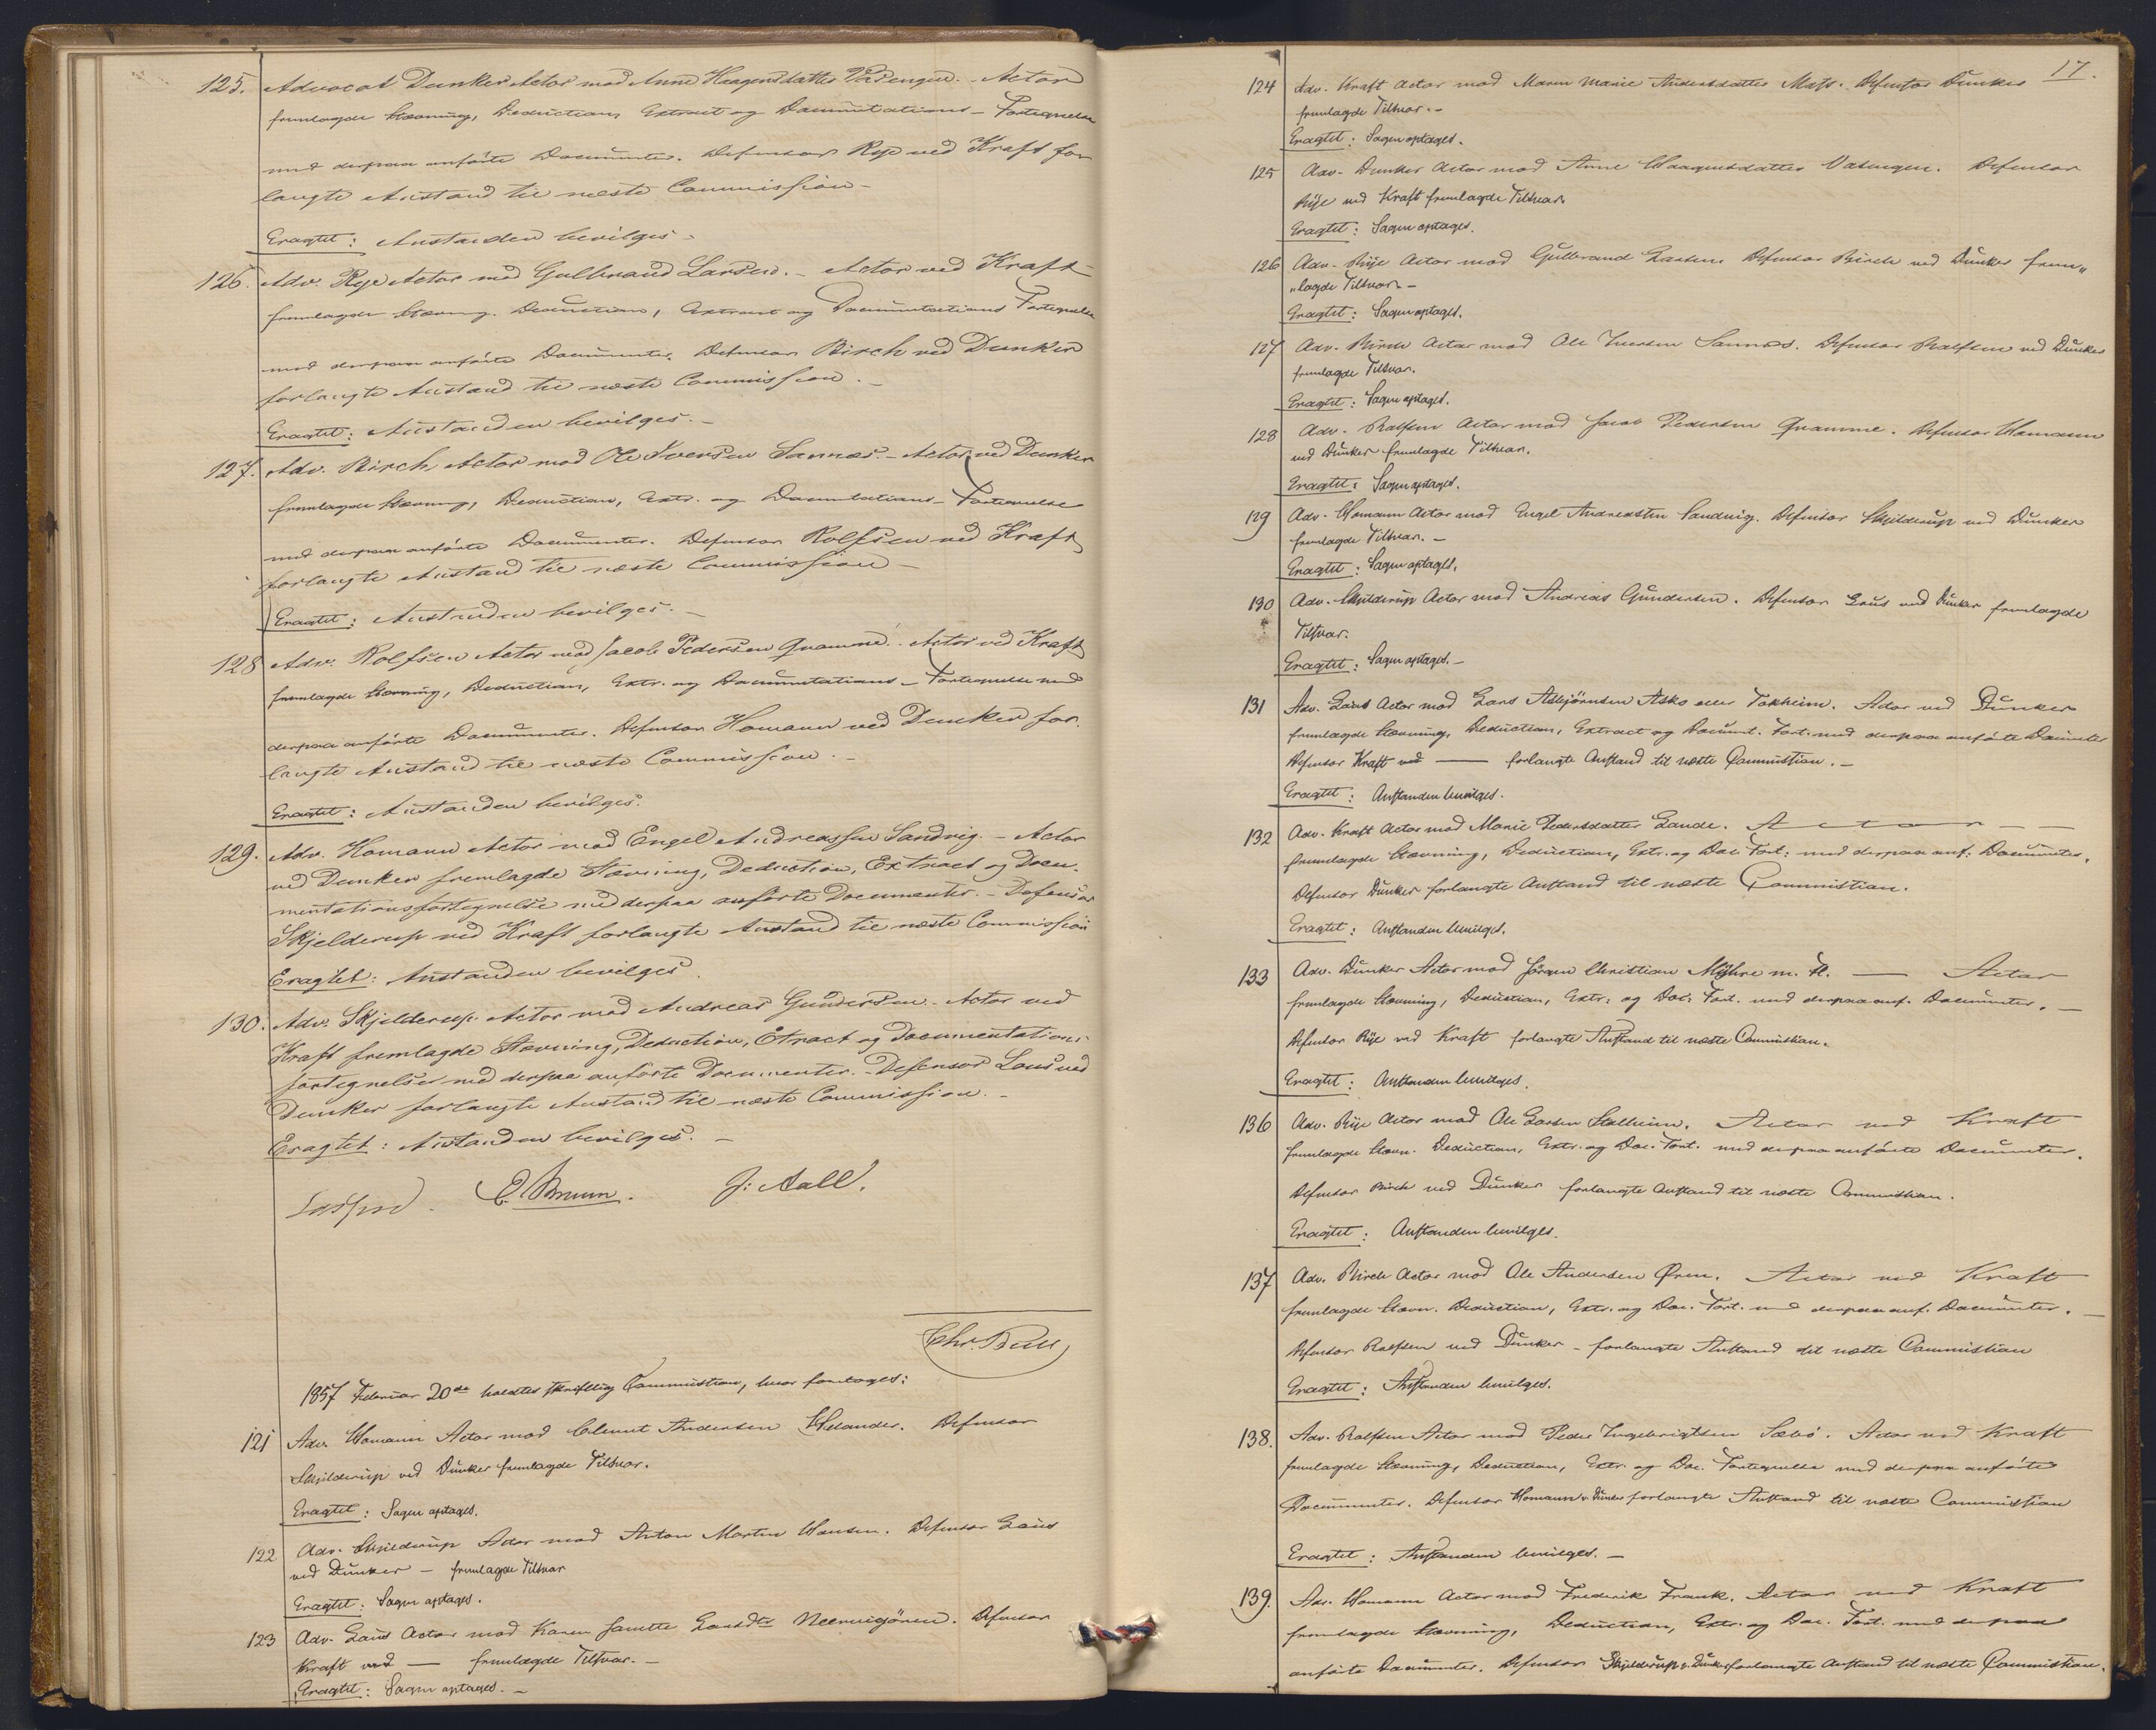 125. Advocat Dunker Actor mod Anne Haagensdatter Vasengen. - Actor
fremlagde Stævning, Deduction, Extract og Documentations-Fortegnelse
med derpaa anførte Documenter. Defensor Rye ved Kraft for
langte Anstand til næste Commission -
Eragtet: Anstanden bevilges -
126. Adv. Rye Actor mod Gulbrand Larsen. - Actor ved Kraft
fremlagde Stævning, Deduction, Extract og Documentations Fortegnelse
med derpaa anførte Documenter. Defensor Birch ved Dunker
forlangte Anstand til næste Commission. -
Eragtet: Anstanden bevilges. -
127. Adv. Birch Actor mod Ole Iversen Sannæs. - Actor ved Dunker
fremlagde Stævning, Deduction, Extr. og Documentations-Fortegnelse
med derpaa anførte Documenter. Defensor Rolfsen ved Kraft
forlangte Anstand til næste Commission -
Eragtet: Anstanden bevilges. -
128 Adv. Rolfsen Actor mod Jacob Pedersen Qvamme. - Actor ved Kraft
fremlagde Stævning, Deduction, Extr. og Documentations-Fortegnelse med
derpaa anførte Documenter. Defensor Homann ved Dunker for
langte Anstand til næste Commission. -
Eragtet: Anstanden bevilges.
129. Adv. Homann Actor mod Engel Andreassen Sandvig. - Actor
ved Dunker fremlagde Stævning, Deduction, Extract og Docu-
mentationsfortegnelse med derpaa anførte Documenter. - Defensor
Skjelderup ved Kraft forlangte Anstand til næste Commission
Eragtet: Anstanden bevilges.
130. Adv. Skjelderup Actor mod Andreas Gundersen. - Actor ved
Kraft fremlagde Stævning, Deduction, Etract og Documentations-
fortegnelse med derpaa anførte Documenter. - Defensor Lous ved
Dunker forlangte Anstand til næste Commission. -
Eragtet: Anstanden bevilges. -
E. Bruun. J: Aall.
Chr. Bull
1857 Februar 20de holdtes skriftlig Commission, hvor foretages:
121 Adv. Homann Actor mod Clemet Andersen Helander. Defensor
Skjelderup ved Dunker fremlagde Tilsvar.
Eragtet: Sagen optages.
122 Adv. Skjelderup Actor mod Anton Martin Hansen. Defensor Lous
ved Dunker - fremlagde Tilsvar
Eragtet: Sagen optages.
123 Adv. Lous Actor mod Karen Janette Larsdtr. Defensor
Kraft ved — fremlagde Tilsvar. -
Eragtet: Sagen optages. -
17.
124 Adv. Kraft Actor mod Maren Marie Andersdatter Defensor Dunker
fremlagde Tilsvar. -
Eragtet: Sagen optages.
125 Adv. Dunker Actor mod Anne Haagensdatter Vasengen. Defensor
Rye ved Kraft fremlagde Tilsvar
Eragtet: Sagen optages.
126 Adv. Rye Actor mod Gulbrand Larsen. Defensor Birch ved Dunker frem„
„lagde Tilsvar. -
Eragtet: Sagen optages.
127 Adv. Birch Actor mod Ole Iversen Sannæs. Defensor Rolfsen ved Dunker
fremlagde Tilsvar.
Eragtet: Sagen optages.
128 Adv. Rolfsen Actor mod Jacob Pedersen Qvamme. Defensor Homann
ved Dunker fremlagde Tilsvar.
Eragtet: Sagen optages.
129 Adv. Homann Actor mod Engel Andreassen Sandvig. Defensor Skjelderup ved Dunker
fremlagde Tilsvar. -
Eragtet: Sagen optages.
130 Adv. Skjelderup Actor mod Andreas Gundersen. Defensor Lous ved Dunker fremlagde
Tilsvar.
Eragtet: Sagen optages. -
131 Adv. Lous Actor mod Lars Asbjörnsen Asko eller Tokheim. Actor ved Dunker
fremlagde Stævning, Deduction, Extract og Docum. Fort. med derpaa anførte Documenter
Defensor Kraft ved — forlangte Anstand til næste Commission. -
Eragtet: Anstanden bevilges.
132 Adv. Kraft Actor mod Marie Pedersdatter Lande. Actor - -
fremlagde Stævning, Deduction, Extr. og Doc. Fort: med derpaa anf: Documenter.
Defensor Dunker forlangte Anstand til næste Commission.
Eragtet: Anstanden bevilges.
133 Adv. Dunker Actor mod Jörgen Christian Myhre m. fl. — Actor
fremlagde Stævning, Deduction, Extr. og Doc. Fort. med derpaa anf. Documenter. -
Defensor Rye ved Kraft forlangte Anstand til næste Commission.
Eragtet: Anstanden bevilges.
136 Adv. Rye Actor mod Ole Larsen Stalheim. Actor ved Kraft
fremlagde Stævn. Deduction, Extr. og Doc. Fort. med derpaa anførte Documenter.
Defensor Birch ved Dunker forlangte Anstand til næste Commission.
Eragtet: Anstanden bevilges.
137 Adv. Birch Actor mod Ole Andersen Øren. Actor ved Kraft
fremlagde Stævn. Deduction, Extr. og Doc. Fort. med derpaa anf. Documenter. -
Defensor Rolfsen ved Dunker - forlangte Anstand til næste Commission
Eragtet: Anstanden bevilges.
138. Adv. Rolfsen Actor mod Peder Ingebrigtsen Sæbö. Actor ved Kraft
fremlagde Stævning, Deduction, Extr. og Doc. Fortegnelse med derpaa anførte
Documenter. Defensor Homann v. Dunker forlangte Anstand til næste Commission
Eragtet: Anstanden bevilges. -
139. Adv. Homann Actor mod Frederik Frank. Actor ved Kraft
fremlagde Stævning, Deduction, Extr. og Doc. Fort. med derpaa
anførte Documenter. Defensor Skjelderup v. Dunker forlangte Anstand til næste Commission.